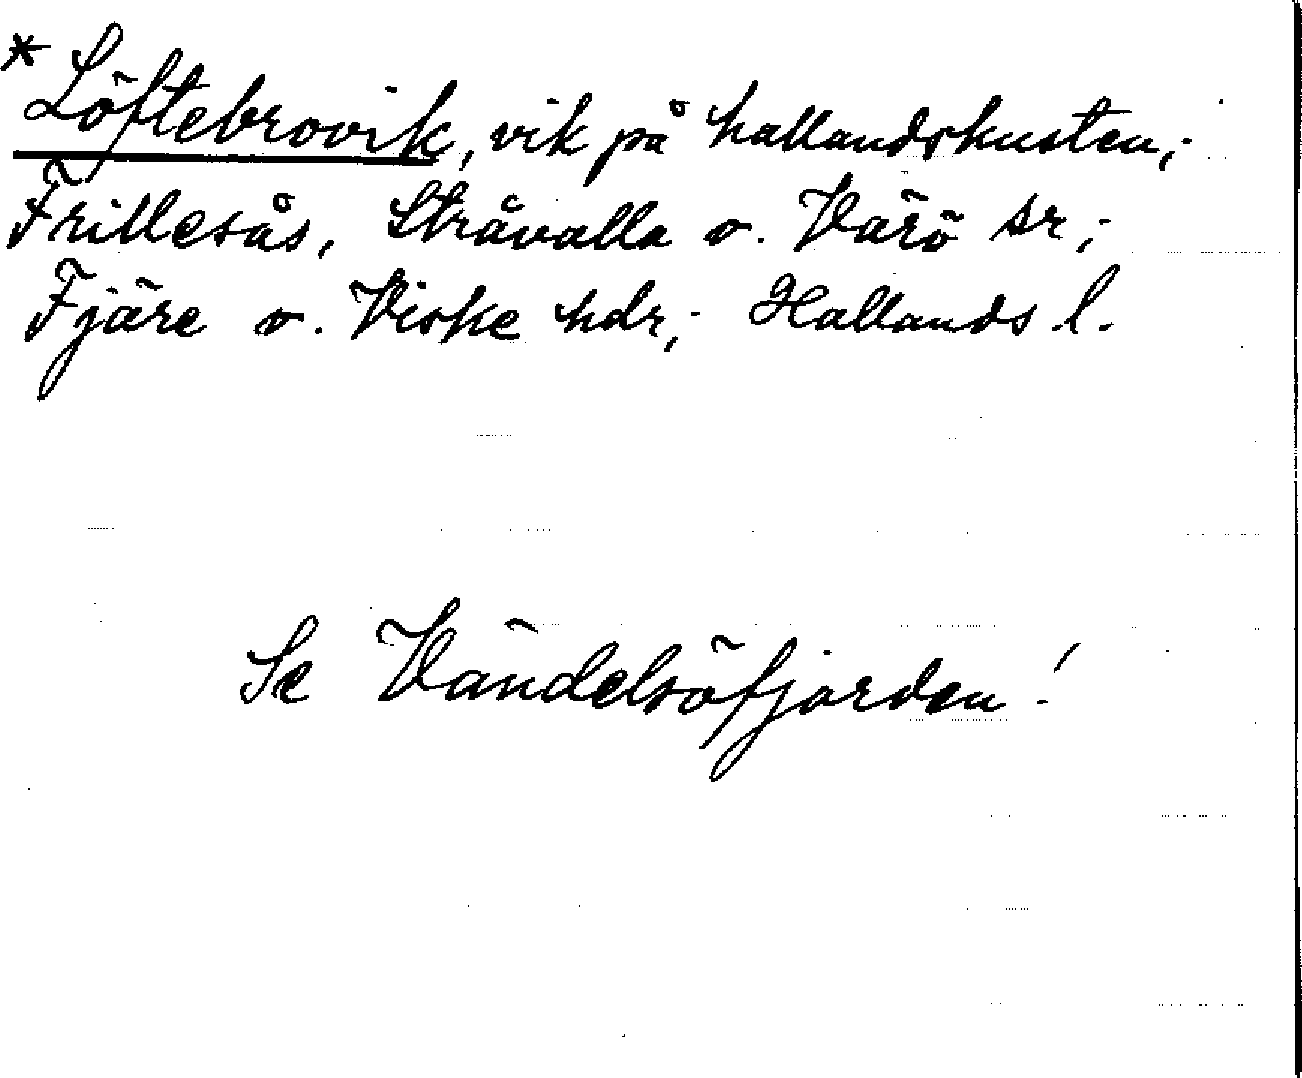 * Löftebrovik, vik på hallandskusten,
Frillesås, Stråvalla o. Värö sr,
Fjäre o. Viske hdr, Hallands l.
Se Vändelsöfjorden!